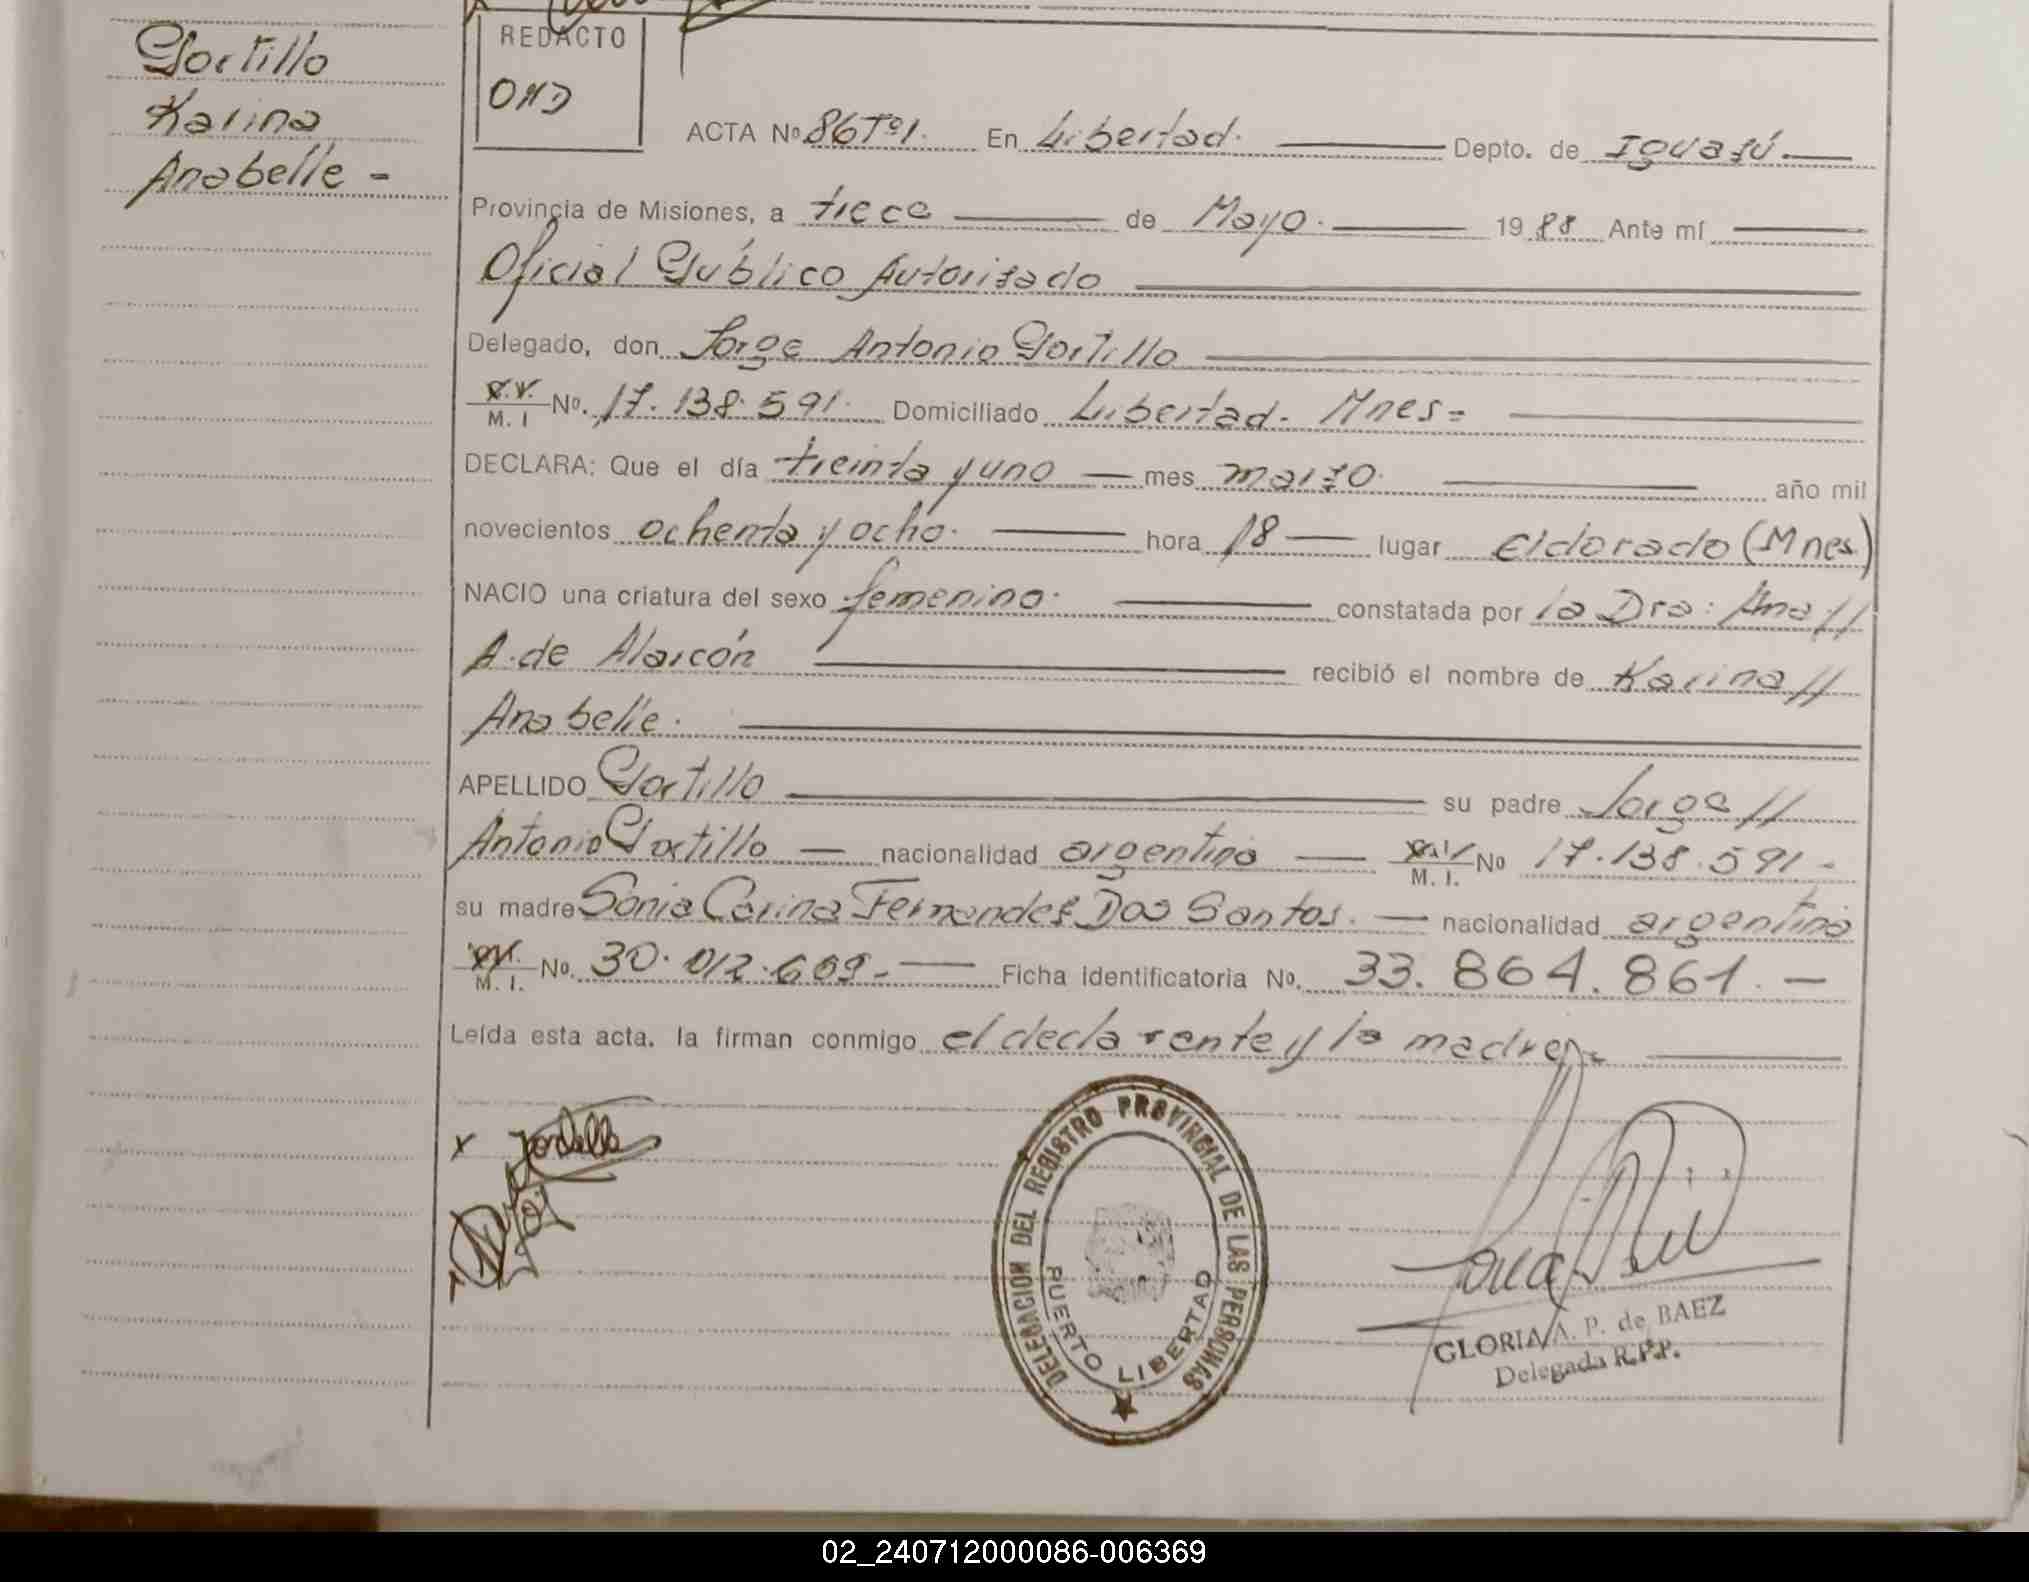 Portillo
Karina
Anabelle -
REDACTO
OMD
ACTA Nº 86 Tº 1. En Libertad. Depto. de Iguazú
Provincia de Misiones, a trece de Mayo. 1988 Ante mí
Oficial Público Autorizado
Delegado, don Jorge Antonio Portillo
M. I Nº. 17.138.591. Domiciliado Libertad. Mnes=
DECLARA: Que el día treinta y uno mes marzo. año mil
novecientos ochenta y ocho. hora 18 lugar Eldorado (Mnes)
NACIO una criatura del sexo femenino. constatada por la Dra: Ana //
A. de Alarcón recibió el nombre de Karina //
Anabelle.
APELLIDO Portillo su padre Jorge //
Antonio Portillo nacionalidad argentina M. I. Nº 17.138.591-
su madre Sonia Carina Fernandez Dos Santos. nacionalidad argentina
M. I. Nº. 30.012.609.- Ficha identificatoria Nº. 33.864.861.-
Leída esta acta, la firman conmigo el declarante y la madre.
x Portillo
DELEGACION DEL REGISTRO PROVINCIAL DE LAS PERSONAS
PUERTO LIBERTAD
GLORIA A. P. de BAEZ
Delegada R.P.P.
02_240712000086-006369